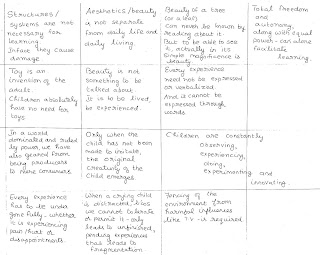 Structures/
systems are not
necessary for
learning.
Infact they cause
damage
Aesthetics/beauty
is not separate
from daily life and
daily living.
Beauty of a tree
(or a leaf)
can never be known by
reading about it.
But to be able to see
it, actually in its
simple magnificence is
beauty.
Total freedom
and
autonomy,
along with equal
power - can alone
facilitate
learning.
Toy is an
invention of the
adults.
Children absolutely
have no need for
toys
Beauty is not
something to be
talked about.
It is to be lived,
be experienced.
Every experience
need not be expressed
or verbalized
And it cannot be
expressed through
words
In a world
dominated and ruled
by power, we have
also geared from
being producers
to mere consumers
Only when the
child has not been
made to imitate,
the original
creativity of the
child emerges
Children are constantly
observing,
experiencing,
doing,
experimenting and
innovating.
Every experience
has to be under
gone fully - whether
it is experiencing
pain/hurt or
disappointments.
When a crying child
is distracted,
we cannot tolerate
or permit it - only
leads to unfinished,
pending experiences
that leads to
fragmentation
Fencing of the
environment from
harmful influences
like T.V - is required